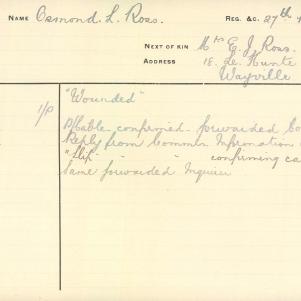 NAME Osmond. L. Ross. REG. &C. 27th
NEXT OF KIN Mrs E. J. Ross.
ADDRESS 18. Le. Hunte
Wayville
"Wounded"
1/P
confirmed - forwarded
Reply from Commn Information
"Slip - " " confirming ca
Same forwarded Inquirer